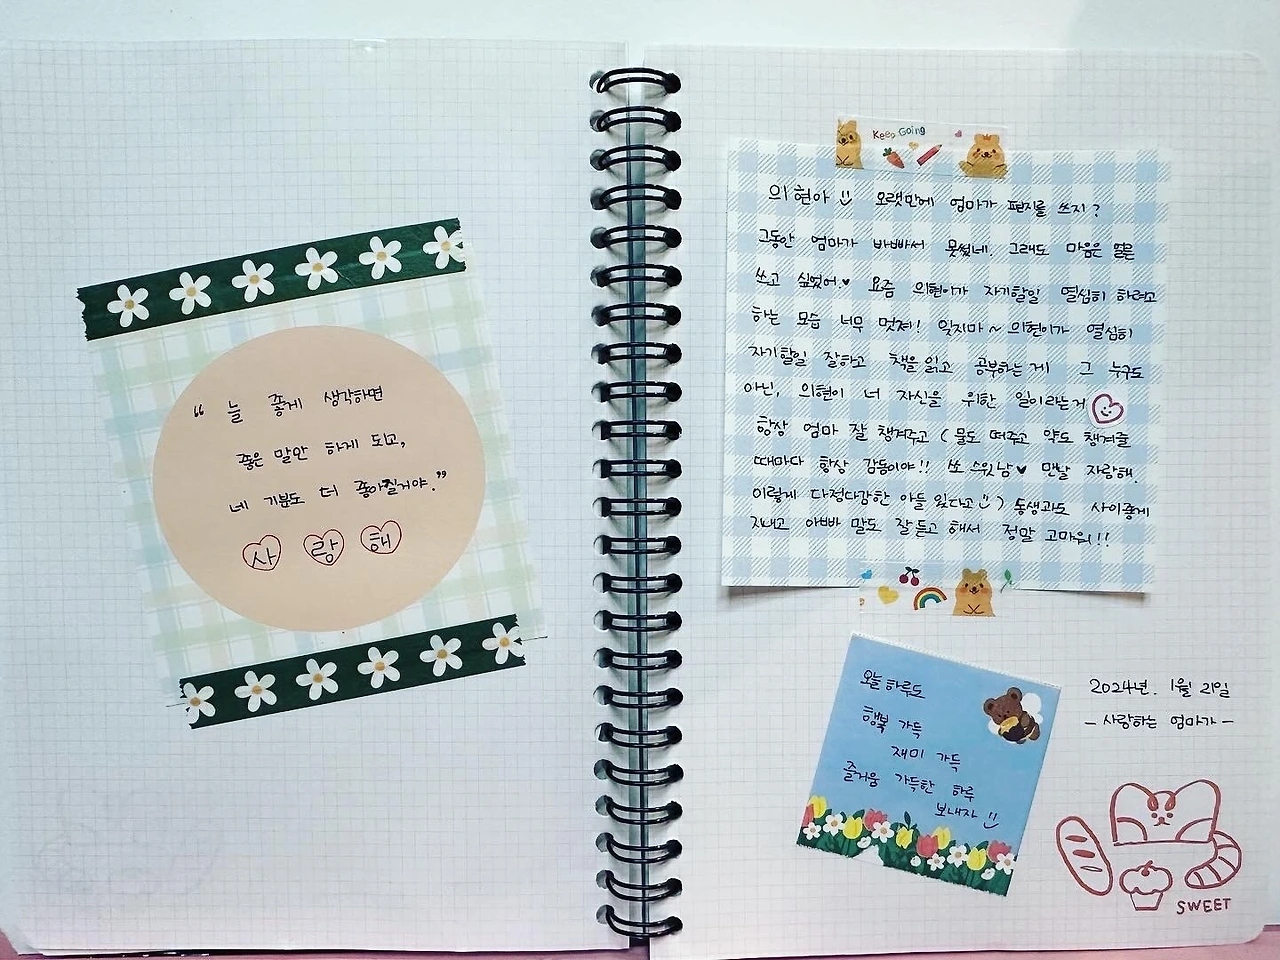 “ 늘 좋게 생각하면
좋은 말만 하게 되고,
네 기분도 더 좋아질거야.”
사랑해
Keep Going
의현아 오랫만에 엄마가 편지를 쓰지?
그동안 엄마가 바빠서 못썼네. 그래도 마음은
쓰고 싶었어♥ 요즘 의현이가 자기할일 열심히 하려고
하는 모습 너무 멋져! 잊지마~ 의현이가 열심히
자기할일 잘하고 책을 읽고 공부하는 게 그 누구도
아닌, 의현이 너 자신을 위한 일이라는거
항상 엄마 잘 챙겨주고 (물도 떠주고 약도 챙겨줄
때마다 항상 감동이야!! 쏘 스윗남♥ 맨날 자랑해.
이렇게 다정다감한 아들 있다고) 동생과도 사이좋게
지내고 아빠 말도 잘 듣고 해서 정말 고마워!!
오늘 하루도
행복 가득
재미 가득
즐거움 가득한 하루
보내자
2024년. 1월 21일
- 사랑하는 엄마가 -
SWEET